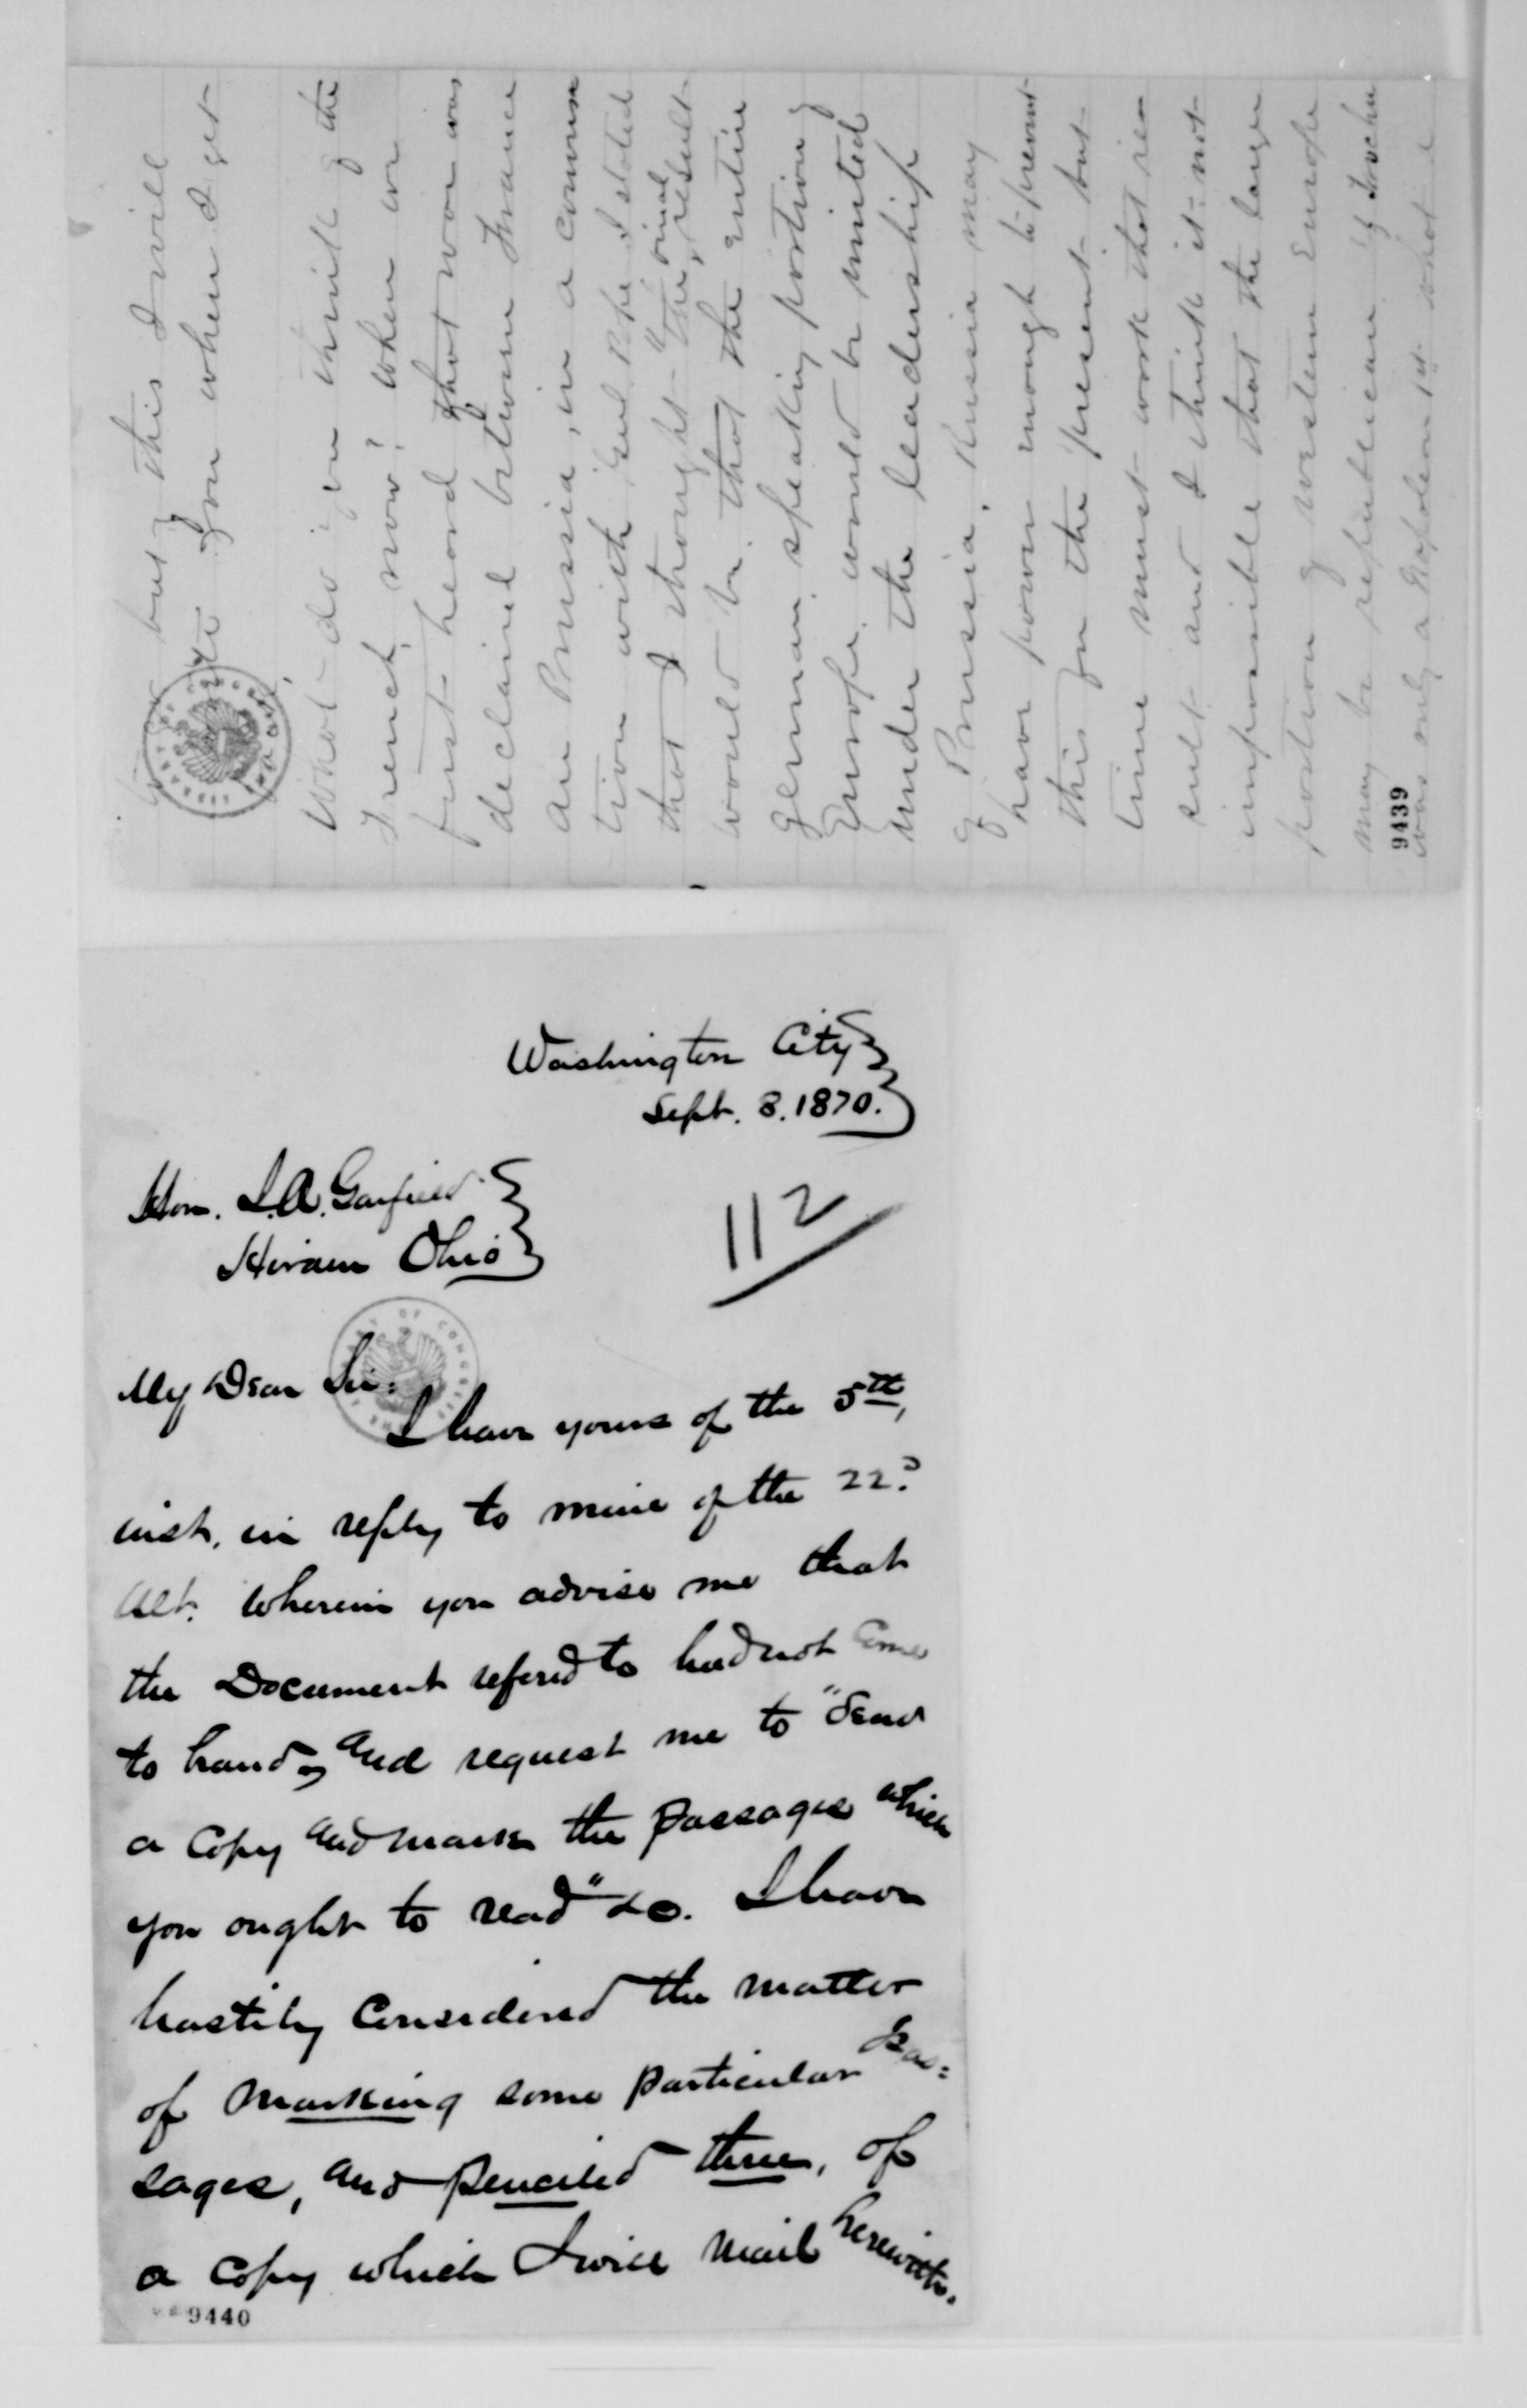 but of this I will
to you when I get
What do you think of the
French now? When we
first heard that war was
declared between France
and Prussia, in a conversa
tion with Genl Pope I stated
that I thought "the final result
would be that the entire
German speaking portion of
Europe would be united
under the leadership
of Prussia. Russia may
have power enough to prevent
this for the present but
time must work that re-
sult and I think it not
impossible that the larger
portion of western Europe
may be republican if Trochu
was only a Napoleon 1st what a
9439
LIBRARY OF CONGRESS
Washington City
Sept. 8. 1870.
Hon. J. A. Garfield
Hiram Ohio
112
My Dear Sir:
I have yours of the 5th,
inst. in reply to mine of the 22d
ult. wherein you advise me that
the Document refered to had not come
to hand, and request me to "send
a copy and mark the passages which
you ought to read" &c. I have
hastily considered the matter
of marking some particular pas=
sages, and penciled three, of
a copy which I will mail herewith.
9440